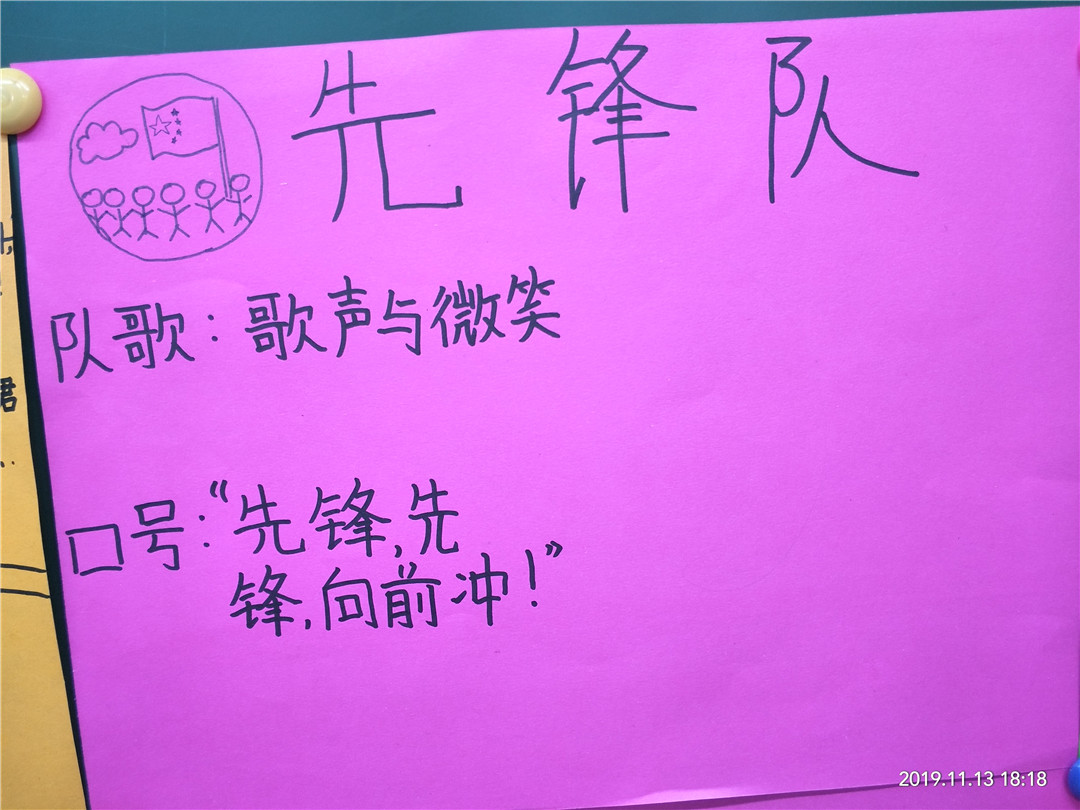 先锋队
队歌：歌声与微笑
口号：“先锋,先
锋,向前冲！”
君
2019.11.13 18:18